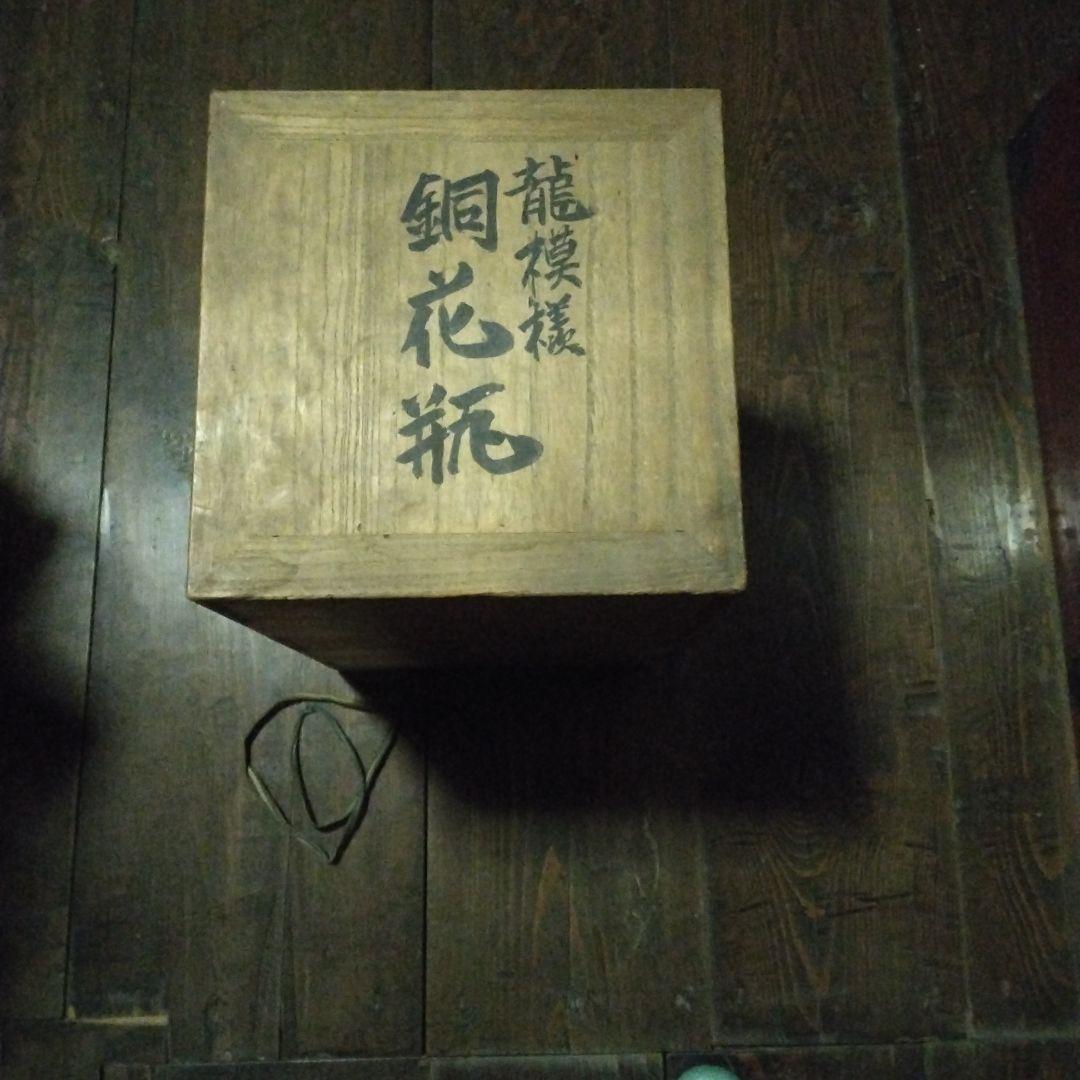 龍模様
銅花瓶